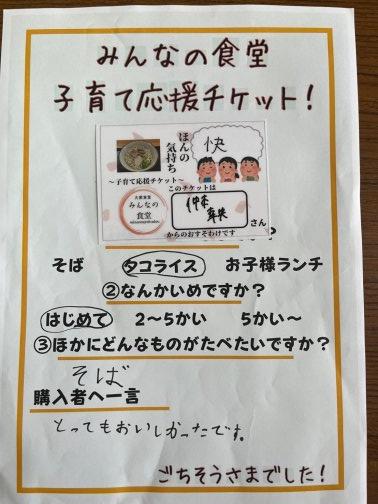 みんなの食堂
子育て応援チケット!
ほんの
気持ち
快
～子育て応援チケット～
このチケットは
大衆食堂
みんなの
食堂
さん
からのおすそわけです
そば タコライス お子様ランチ
②なんかいめですか?
はじめて 2～5かい 5かい～
③ほかにどんなものがたべたいですか?
そば
購入者へ一言
とってもおいしかったです。
ごちそうさまでした!